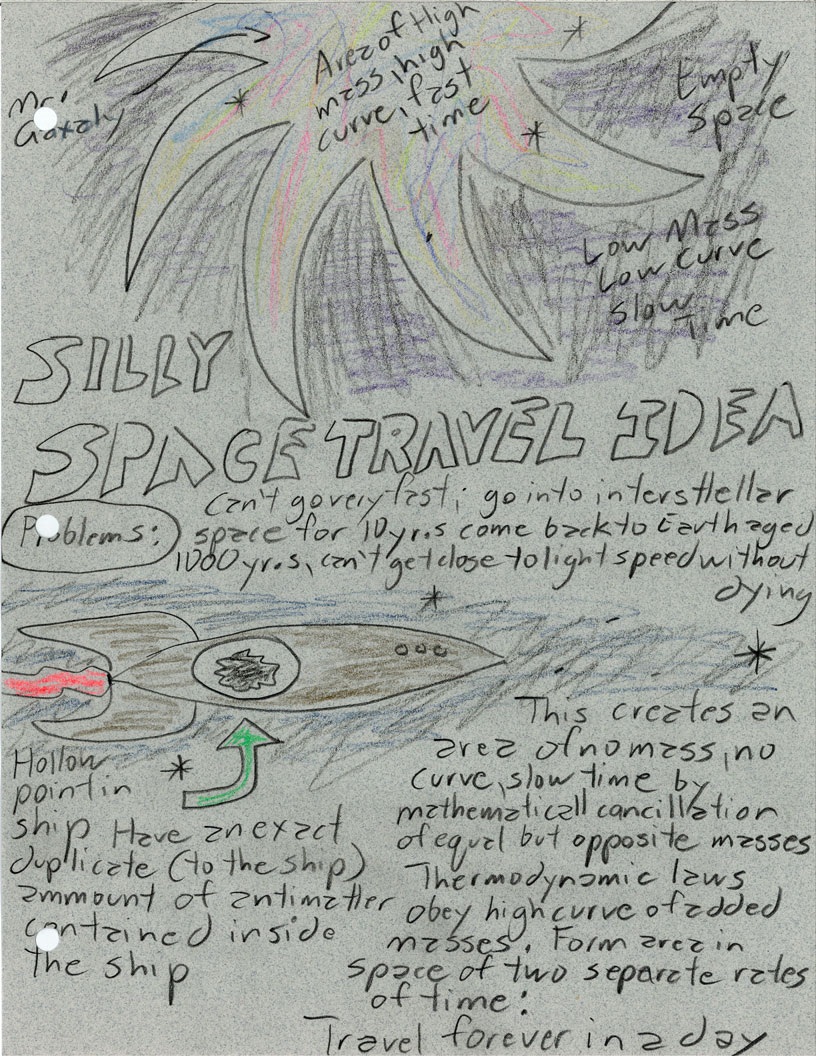 Area of High
mass, high
curve, fast
time
Mr.
Gaxaly
Empty
Space
Low Mass
Low Curve
Slow
Time
SILLY
SPACE TRAVEL IDEA
Problems:
Can't go very fast; go into interstellar
space for 10 yr.s come back to Earth aged
1000 yr.s, can't get close to light speed without
dying
Hollow
point in
ship Have an exact
duplicate (to the ship)
ammount of antimatter
contained inside
the ship
This creates an
area of no mass, no
curve, slow time by
mathematicall cancillation
of equal but opposite masses
Thermodynamic laws
obey high curve of added
masses. Form area in
space of two separate rates
of time:
Travel forever in a day